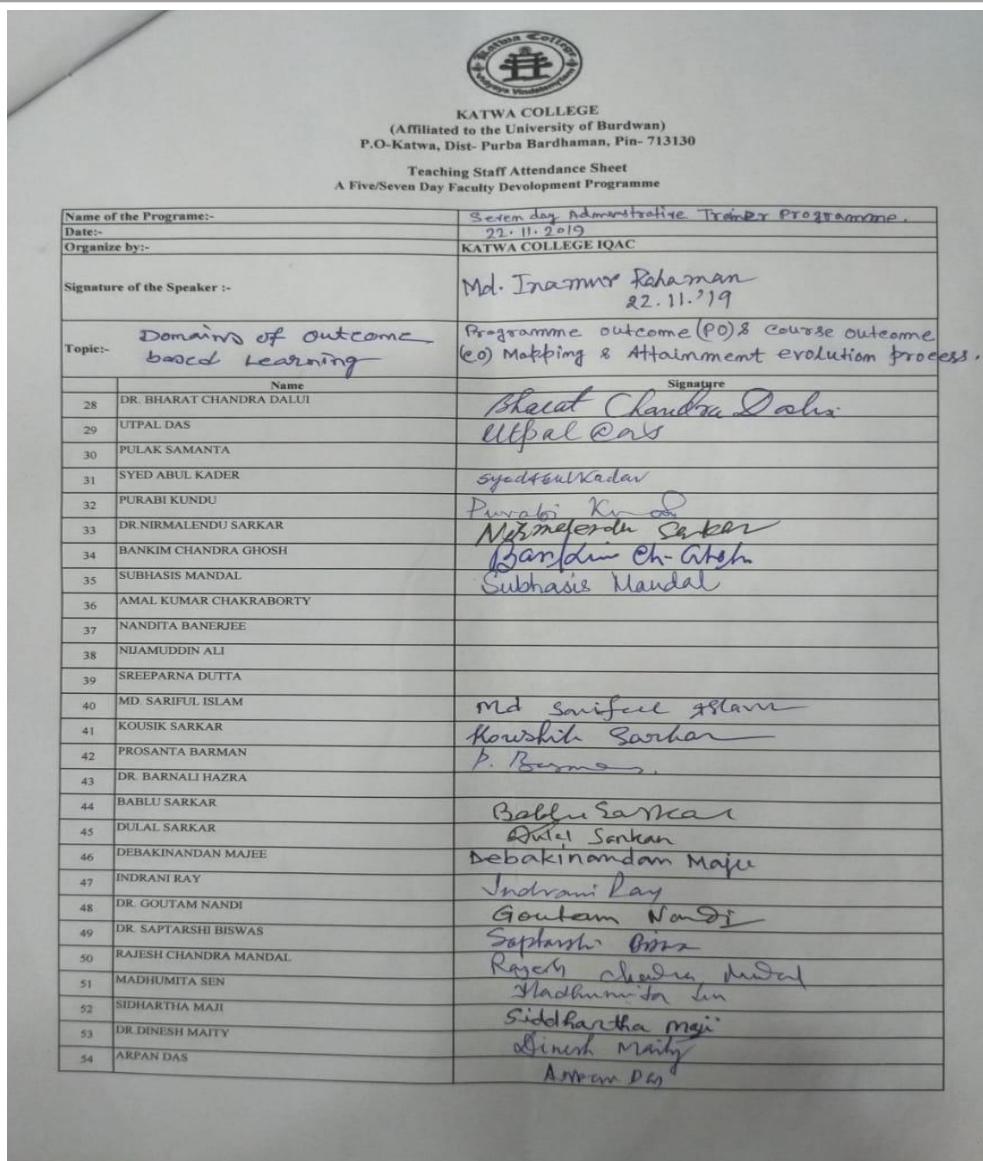 Katwa College
Vidyaya Vindatemritam
KATWA COLLEGE
(Affiliated to the University of Burdwan)
P.O-Katwa, Dist- Purba Bardhaman, Pin- 713130
Teaching Staff Attendance Sheet
A Five/Seven Day Faculty Devolopment Programme
Name of the Programe:- Seven day Administrative Programme.
Date:- 22.11.2019
Organize by:- KATWA COLLEGE IQAC
Signature of the Speaker :- Md. Inamur Rahaman
22.11.'19
Topic:- Domains of outcome based Learning
Programme outcome (PO) & Course outcome
(CO) Mapping & Attainment evolution process.
Name Signature
28 DR. BHARAT CHANDRA DALUI Bharat Chandra Dalui
29 UTPAL DAS Utpal Das
30 PULAK SAMANTA
31 SYED ABUL KADER Syed Abul Kader
32 PURABI KUNDU Purabi
33 DR.NIRMALENDU SARKAR Nirmalendu Sarkar
34 BANKIM CHANDRA GHOSH Bankim Ch- Ghosh
35 SUBHASIS MANDAL Subhasis Mandal
36 AMAL KUMAR CHAKRABORTY
37 NANDITA BANERJEE
38 NIJAMUDDIN ALI
39 SREEPARNA DUTTA
40 MD. SARIFUL ISLAM Md Sariful Islam
41 KOUSIK SARKAR Koushik Sarkar
42 PROSANTA BARMAN P. Barman.
43 DR. BARNALI HAZRA
44 BABLU SARKAR Bablu Sarkar
45 DULAL SARKAR Dulal Sarkar
46 DEBAKINANDAN MAJEE Debakinandan Majee
47 INDRANI RAY Indrani Ray
48 DR. GOUTAM NANDI Goutam Nandi
49 DR. SAPTARSHI BISWAS Saptarshi Biswas
50 RAJESH CHANDRA MANDAL Rajesh Chandra Mandal
51 MADHUMITA SEN Madhumita Sen
52 SIDHARTHA MAJI Siddhartha Maji
53 DR.DINESH MAITY Dinesh Maity
54 ARPAN DAS Arpan Das